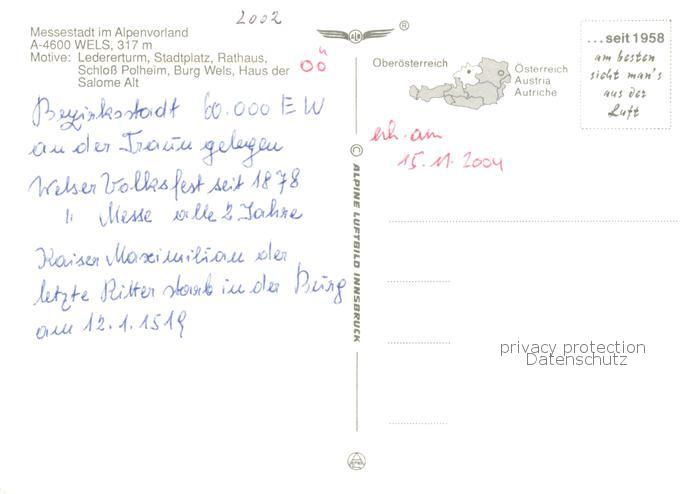 2002
Messestadt im Alpenvorland
A-4600 WELS, 317 m
Motive: Ledererturm, Stadtplatz, Rathaus,
Schloß Polheim, Burg Wels, Haus der
Salome Alt
OÖ
Bezirksstadt 60.000 EW
an der Traun gelegen
Welser Volksfest seit 1878
" Messe alle 2 Jahre
Kaiser Maximilian der
letzte Ritter starb in der Burg
am 12.1.1519
®
Oberösterreich
Österreich
Austria
Autriche
...seit 1958
am besten
sieht man's
aus der
Luft
erh. am
15.11.2004
© ALPINE LUFTBILD INNSBRUCK
privacy protection
Datenschutz